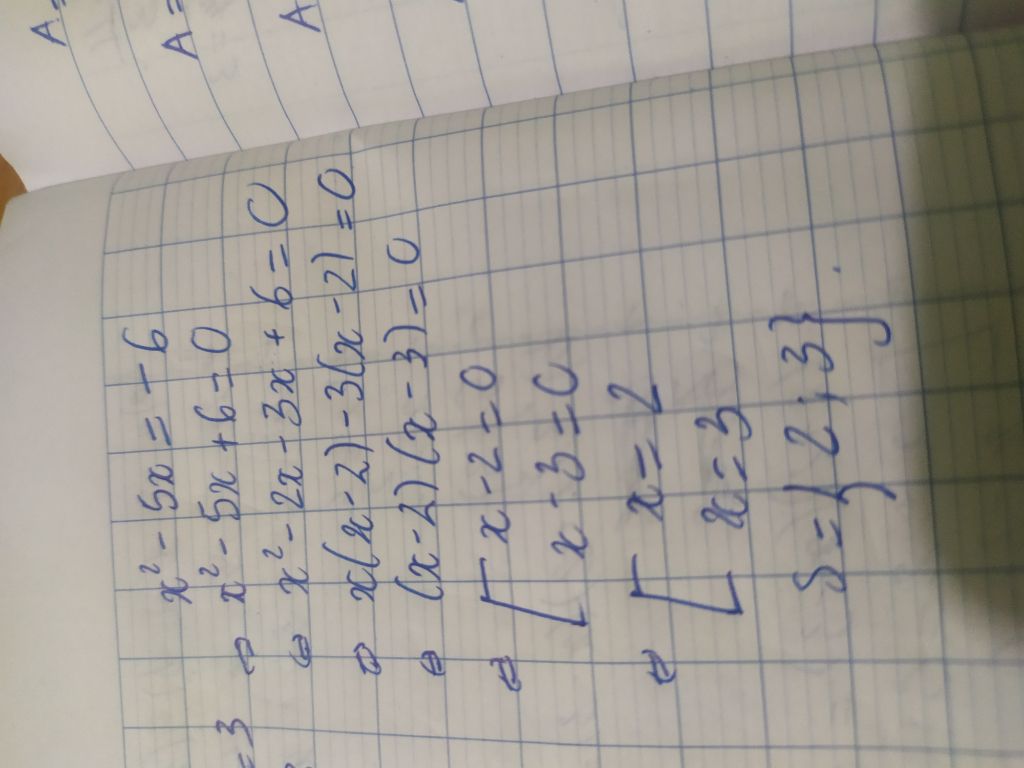 x² - 5x = -6
⇔ x² - 5x + 6 = 0
⇔ x² - 2x - 3x + 6 = 0
⇔ x(x - 2) - 3(x - 2) = 0
⇔ (x - 2)(x - 3) = 0
⇔ [ x - 2 = 0
x - 3 = 0
⇔ [ x = 2
x = 3
S = { 2 ; 3 }
= 3
A =
A =
A